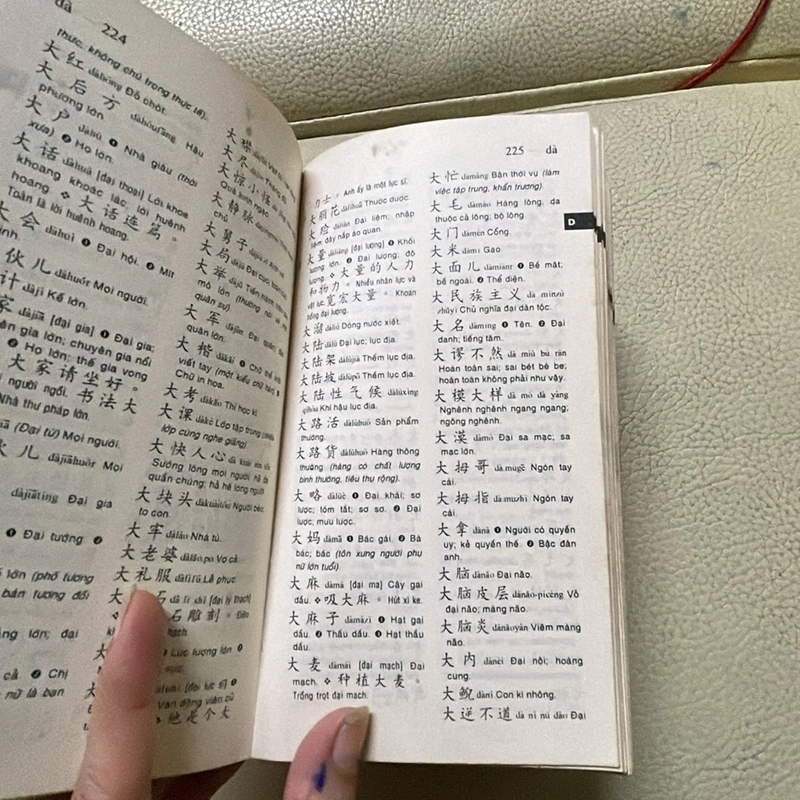 dà 224
thức, không chú trọng thực tế).
大红 dàhóng Đỏ chót.
大后方 dàhòufāng Hậu
phương lớn.
大户 dàhù ❶ Nhà giàu (thời
xưa) ❷ Họ lớn.
大话 dàhuà [đại thoại] Lời khoe
khoang khoác lác, lời huênh
hoang. ❖ 大话连篇。
Toàn là lời huênh hoang.
大会 dàhuì ❶ Đại hội. ❷ Mít
伙儿 dàhuǒr Mọi người.
计 dàjì Kế lớn.
家 dàjiā [đại gia] ❶ Đại gia;
gia lớn; chuyên gia nổi
❷ Họ lớn; thế gia vọng
大家请坐好。
người ngồi. 书法大
Nhà thư pháp lớn.
(Đại từ) Mọi người.
伙儿 dàjiāhuǒr Mọi
dàjiātíng Đại gia
❶ Đại tướng ❷
lớn (phố tương
bản tương đối
lớn; đại
cả ❷ Chị
nữ là bạn
大襟
大尽
大惊小怪
Quá kinh ngạc
大静脉
chủ
大舅子
大局
大举
mô lớn
quân sự)
大军 dàjūn
quân lớn.
大楷 dàkǎi ❶ Chữ
viết tay
Chữ in hoa.
大考 dàkǎo Thi học kì.
大课 dàkè Lớp tập trung
lớp cùng nghe giảng).
大快人心
Sướng lòng mọi người; hả dạ
quần chúng; hả hê lòng người
大块头 dàkuàitóu Người béo,
to con.
大牢 dàláo Nhà tù.
大老婆 dàlǎo.po Vợ cả
大礼服 dàlǐfú Lễ phục
石 dà lǐ shí [đại lý thạch]
石雕刻。 Điêu
❶ Lực lượng lớn. ❷
[đại lực sĩ] ❶
Vận động viên cử
❖ 他是个大
225 dà
力士。 Anh ấy là một lực sĩ.
大丽花 dàlìhuā Thược dược.
大殓 dàliàn Đại liệm; nhập
liệm đậy nắp áo quan.
大量 dàliàng [đại lượng] ❶ Khối
lượng lớn. ❷ Đại lượng; độ
lượng. ❖ 大量的人力
和物力。 Nhiều nhân lực và
vật lực 宽宏大量。 Khoan
hồng đại lượng.
大溜 dàliù Dòng nước xiết.
大陆 dàlù Đại lục; lục địa.
大陆架 dàlùjià Thềm lục địa.
大陆坡 dàlùpō Thềm lục địa.
大陆性气候 dàlùxìng
qìhòu Khí hậu lục địa.
大路活 dàlùhuó Sản phẩm
thường.
大路货 dàlùhuò Hàng thông
thường (hàng có chất lượng
bình thường, tiêu thụ rộng).
大略 dàlüè ❶ Đại khái; sơ
lược; tóm tắt; sơ sơ. ❷ Đại
lược; mưu lược.
大妈 dàmā ❶ Bác gái. ❷ Bà
bác; bác (tôn xưng người phụ
nữ lớn tuổi).
大麻 dàmá [đại ma] Cây gai
dầu. ❖ 吸大麻。 Hút xì ke.
大麻子 dàmázǐ ❶ Hạt gai
dầu. ❷ Thầu dầu. ❸ Hạt thầu
dầu.
大麦 dàmài [đại mạch] Đại
mạch. ❖ 种植大麦。
Trồng trọt đại mạch.
大忙 dàmáng Bận thời vụ (làm
việc tập trung, khẩn trương).
大毛 dàmáo Hàng lông, da
thuộc cả lông; bộ lông
大门 dàmén Cổng.
大米 dàmǐ Gạo
大面儿 dàmiànr ❶ Bề mặt;
bề ngoài. ❷ Thể diện.
大民族主义 dà mínzú
zhǔyì Chủ nghĩa đại dân tộc.
大名 dàmíng ❶ Tên. ❷ Đại
danh; tiếng tăm.
大谬不然 dà miù bù rán
Hoàn toàn sai; sai bét bè be;
hoàn toàn không phải như vậy.
大模大样 dà mó dà yàng
Nghênh nghênh ngang ngang;
ngông nghênh.
大漠 dàmò Đại sa mạc; sa
mạc lớn.
大拇哥 dà.mugē Ngón tay
cái.
大拇指 dà.muzhǐ Ngón tay
cái.
大拿 dàná ❶ Người có quyền
uy; kẻ quyền thế. ❷ Bậc đàn
anh.
大脑 dànǎo Đại não.
大脑皮层 dànǎo-pícéng Vỏ
đại não; màng não.
大脑炎 dànǎoyán Viêm màng
não.
大内 dànèi Đại nội; hoàng
cung.
大鲵 dàní Con kì nhông.
大逆不道 dà nì bù dào Đại
D